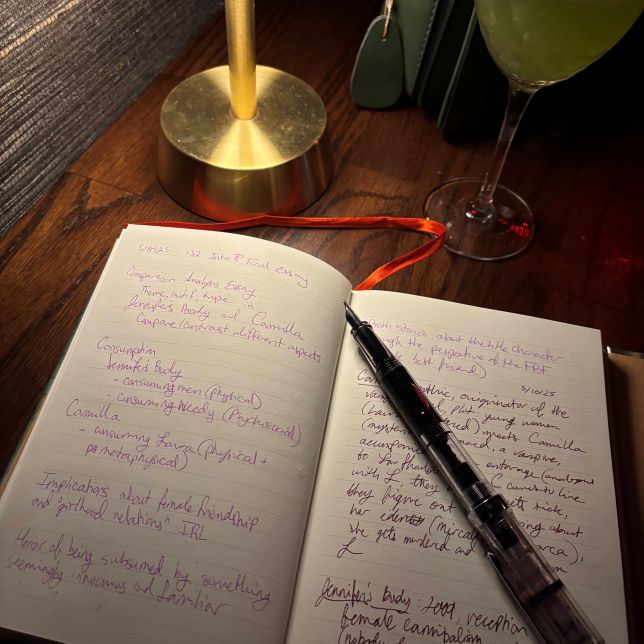 5/8/25 132 Intro Final Essay
Comparison Analysis Essay
Theme, motif, trope
Jennifer's Body and "Carmilla"
Compare/contrast different aspects
Consumption
Jennifer's Body
- consuming men (physical)
- consuming Needy (Psychosocial)
Carmilla
- consuming Laura (physical +
metaphysical)
Implications about female friendship
and "girlhood relations" IRL
Horror of being subsumed by something
seemingly innocuous and familiar
both stories about the title character
through the perspective of the
best friend)
5/10/25
gothic, originator of the
plot: young woman
(Laura) meets Carmilla
(mysterious a vampire,
accompanied entourage
to
with L, they sick,
they figure out about
her (
she gets murdered and
L
Jennifer's Body: 2009, reception
female cannibalism
(nobody